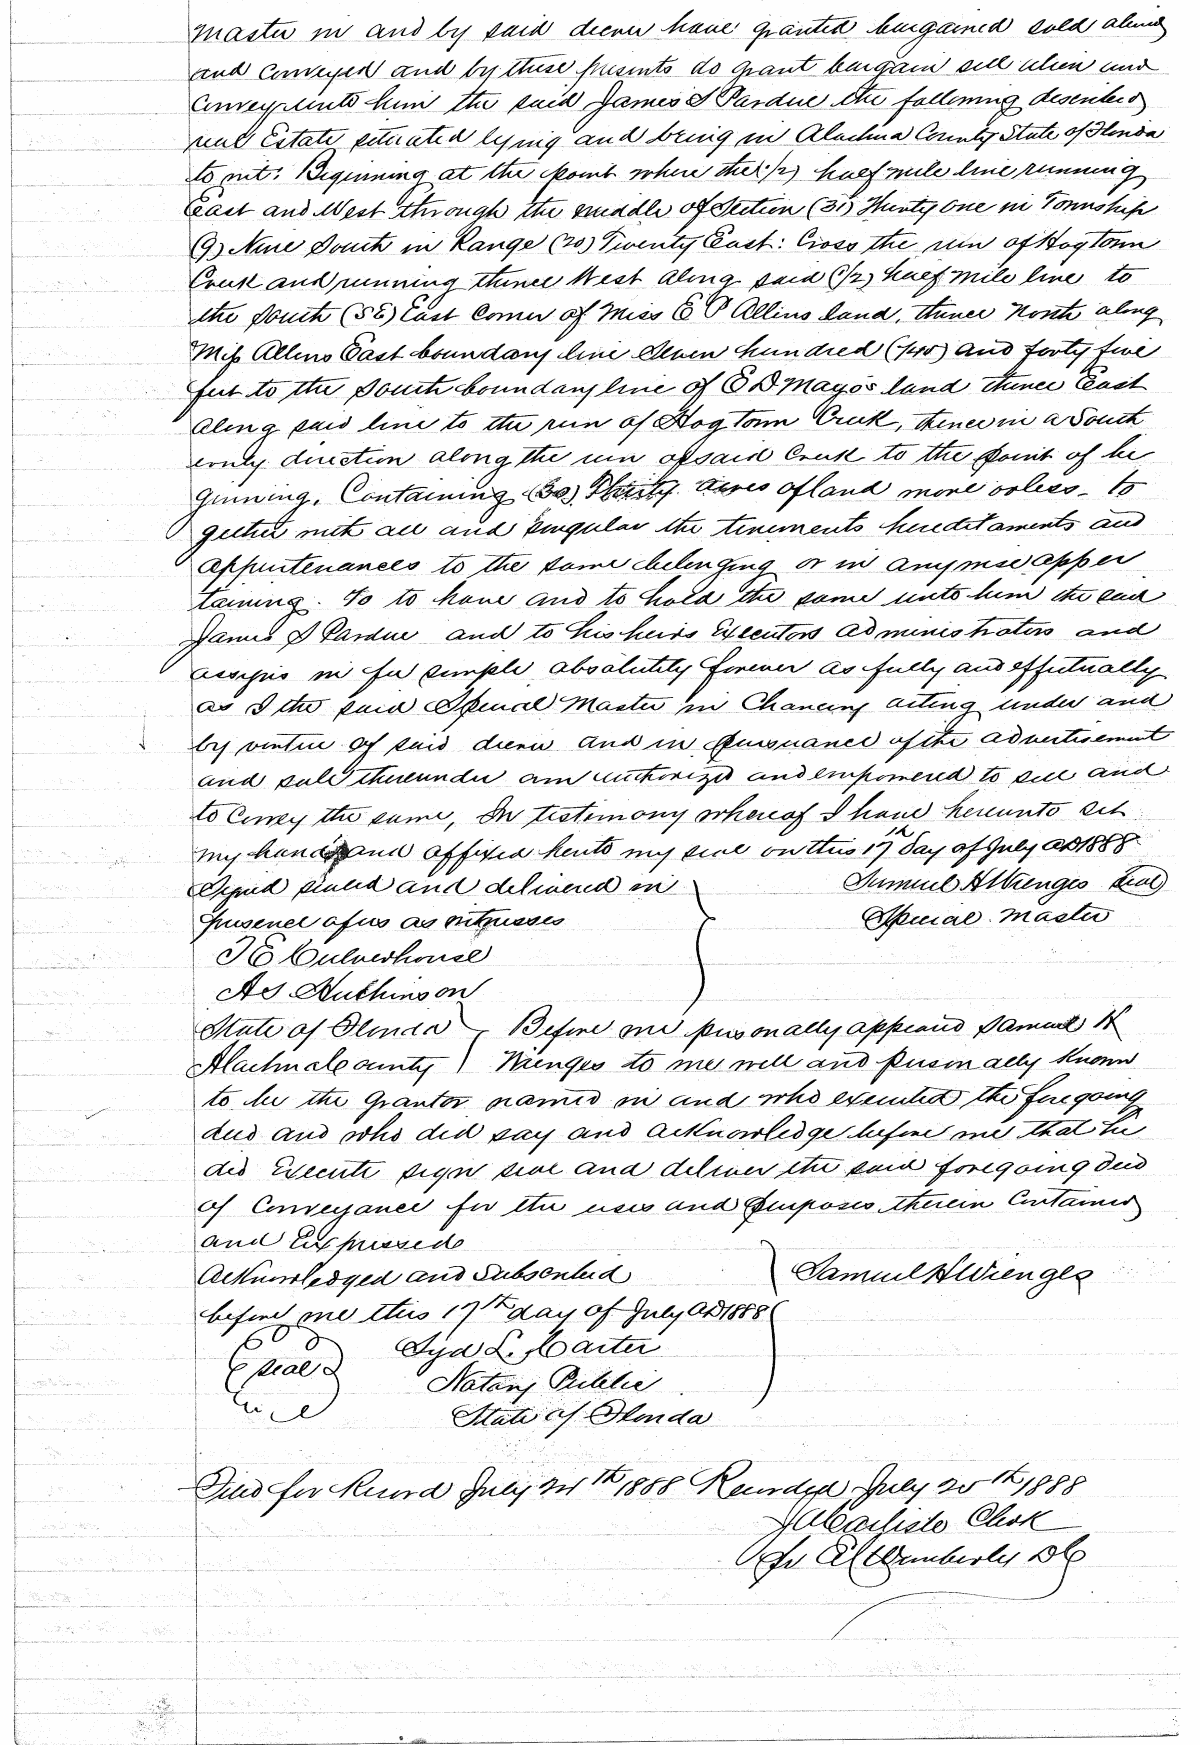 Master in and by said decree have granted bargained sold aliend
and Conveyed and by these presents do grant bargain sell alien and
Convey unto him the said James S Pardue the following described
real Estate situated lying and being in Alachua County State of Florida
to wit: Beginning at the point where the (1/2) half mile line running
East and West through the middle of Section (31) Thirty one in Township
(9) Nine South in Range (20) Twenty East: Cross the run of Hogtown
Creek and running thence West along said (1/2) half mile line to
the South (SE) East Corner of Miss E P Allins land, thence North along
Miss Allins East boundary line Seven hundred (745) and forty five
feet to the South boundary line of E D Mayo's land thence East
along said line to the run of Hogtown Creek, thence in a South
eruly direction along the run of said Creek to the point of be
ginning. Containing (30) Thirty Acres of land more or less - to
gether with all and singular the tenements hereditaments and
appurtenances to the same belonging or in anywise apper
taining. To to have and to hold the same unto him the said
James S Pardue and to his heirs Executors administrators and
assigns in fee simple absolutely forever as fully and effectually
as I the said Special Master in Chancery acting under and
by virtue of said decree and in pursuance of the advertisement
and sale thereunder am authorized and empowered to sell and
to Convey the same, In testimony whereof I have hereunto set
my hand and affixed hereto my seal on this 17th day of July AD 1888
Signed sealed and delivered in Samuel H Wienges Seal
presence of us as witnesses Special Master
J E Culverhouse
A S Hutchinson
State of Florida Before me personally appeared Samuel H
Alachua County Wienges to me well and personally Known
to be the Grantor named in and who executed the foregoing
deed and who did say and acknowledge before me that he
did Execute sign seal and deliver the said foregoing deed
of Conveyance for the uses and purposes therein Contained
and Expressed
Acknowledged and Subscribed Samuel H Wienges
before me this 17th day of July AD 1888
Seal Syd L. Carter
Notary Public
State of Florida
Filed for Record July 24th 1888 Recorded July 25th 1888
J A Carlisle Clerk
Per Wimberly DC